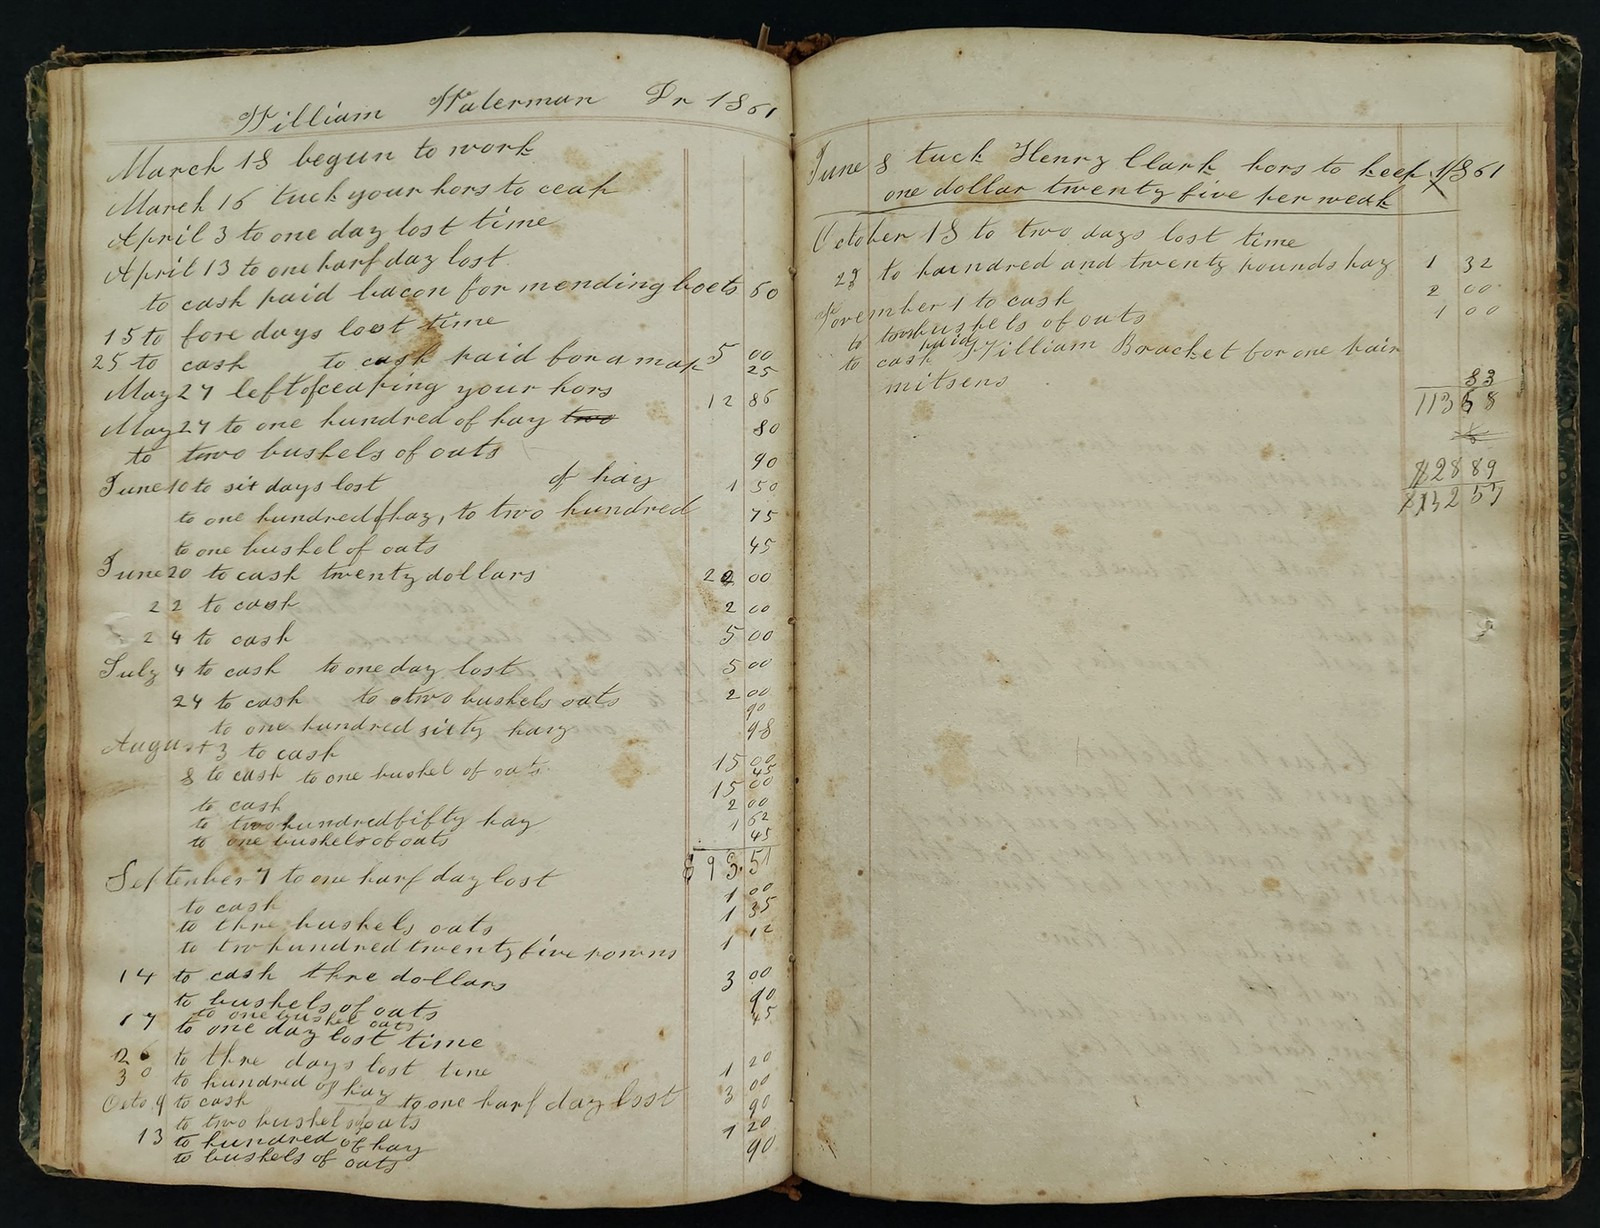 William Waterman Dr 1861
March 18 begun to work
March 16 tuck your hors to ceap
April 3 to one day lost time
April 13 to one harf day lost
to cash paid bacon for mending boots 50
15 to fore days lost time
25 to cash to cash paid for a map 5 00
25
May 27 left of ceaping your hors 12 86
May 27 to one hundred of hay two 80
to two bushels of oats 90
June 10 to six days lost of hay 1 50
to one hundred of hay, to two hundred 75
to one bushel of oats 45
June 20 to cash twenty dollars 20 00
22 to cash 2 00
24 to cash 5 00
July 4 to cash to one day lost 5 00
24 to cash to two bushels oats 2 00
90
to one hundred sixty hay 98
August 3 to cash 15 00
8 to cash to one bushel of oats 45
15 00
to cash 2 00
to two hundred fifty hay 1 62
to one bushels of oats 45
$ 93.51
September 7 to one harf day lost
to cash 1 00
to thre bushels oats 1 35
to two hundred twenty five 1 12
14 to cash thre dollars 3 00
to bushels of oats 90
to one bushel oats 45
17 to one day lost time
26 to thre days lost time
30 to hundred of hay 1 20
Octo 9 to cash to one harf day lost 3 00
to two bushels of oats 90
13 to hundred of hay 1 20
to bushels of oats 90
June 8 tuck Henry Clark hors to keep 1861
one dollar twenty five per weak
October 18 to two days lost time
to hundred and twenty pounds hay 1 32
November 1 to cash 2 00
to two bushels of oats 1 00
paid
to cash William Bracket for one pair
mitsens 83
113 68
28 89
132 57